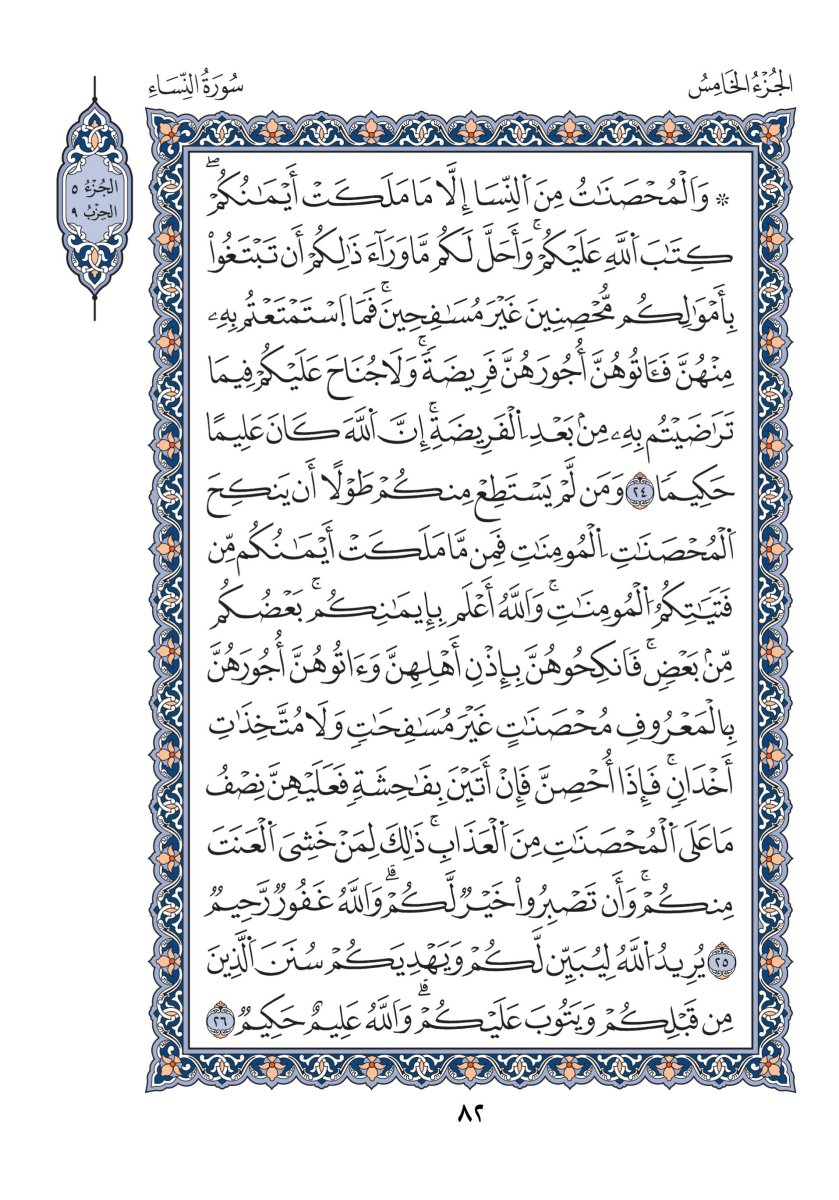 الجُزْءُ الخَامِسُ
سُورَةُ النِّسَاءِ
الجُزْءُ ٥
الحِزْبُ ٩
* وَاَلْمُحْصَنَٰتُ مِنَ اَلنِّسَا إِلَّا مَا مَلَكَتْ أَيْمَٰنُكُمْۖ
كِتَٰبَ اَللَّهِ عَلَيْكُمْۚ وَأَحَلَّ لَكُم مَّا وَرَآءَ ذَٰلِكُمْ أَن تَبْتَغُواْ
بِأَمْوَٰلِكُم مُّحْصِنِينَ غَيْرَ مُسَٰفِحِينَۚ فَمَا اَ۪سْتَمْتَعْتُم بِهِۦ
مِنْهُنَّ فَـَٔاتُوهُنَّ أُجُورَهُنَّ فَرِيضَةًۚ وَلَا جُنَاحَ عَلَيْكُمْ فِيمَا
تَرَٰضَيْتُم بِهِۦ مِنۢ بَعْدِ اِلْفَرِيضَةِۚ إِنَّ اَللَّهَ كَانَ عَلِيمًا
حَكِيمَا ٢٤ وَمَن لَّمْ يَسْتَطِعْ مِنكُمْ طَوْلًا أَن يَنكِحَ
اَلْمُحْصَنَٰتِ اِلْمُومِنَٰتِ فَمِن مَّا مَلَكَتْ أَيْمَٰنُكُم مِّن
فَتَيَٰتِكُمُ اُلْمُومِنَٰتِۚ وَاَللَّهُ أَعْلَم بِإِيمَٰنِكُمۚ بَعْضُكُم
مِّنۢ بَعْضٖۚ فَانكِحُوهُنَّ بِإِذْنِ أَهْلِهِنَّ وَءَاتُوهُنَّ أُجُورَهُنَّ
بِالْمَعْرُوفِ مُحْصَنَٰتٍ غَيْرَ مُسَٰفِحَٰتٖ وَلَا مُتَّخِذَٰتِ
أَخْدَانٖۚ فَإِذَا أُحْصِنَّ فَإِنْ أَتَيْنَ بِفَٰحِشَةٖ فَعَلَيْهِنَّ نِصْفُ
مَا عَلَى اَلْمُحْصَنَٰتِ مِنَ اَلْعَذَابِۚ ذَٰلِكَ لِمَنْ خَشِيَ اَلْعَنَتَ
مِنكُمْۚ وَأَن تَصْبِرُواْ خَيْرٞ لَّكُمْۗ وَاَللَّهُ غَفُورٞ رَّحِيمٞ
٢٥ يُرِيدُ اُللَّهُ لِيُبَيِّن لَّكُمْ وَيَهْدِيَكُمْ سُنَنَ اَلَّذِينَ
مِن قَبْلِكُمْ وَيَتُوبَ عَلَيْكُمْۗ وَاَللَّهُ عَلِيمٌ حَكِيمٞ ٢٦
٨٢